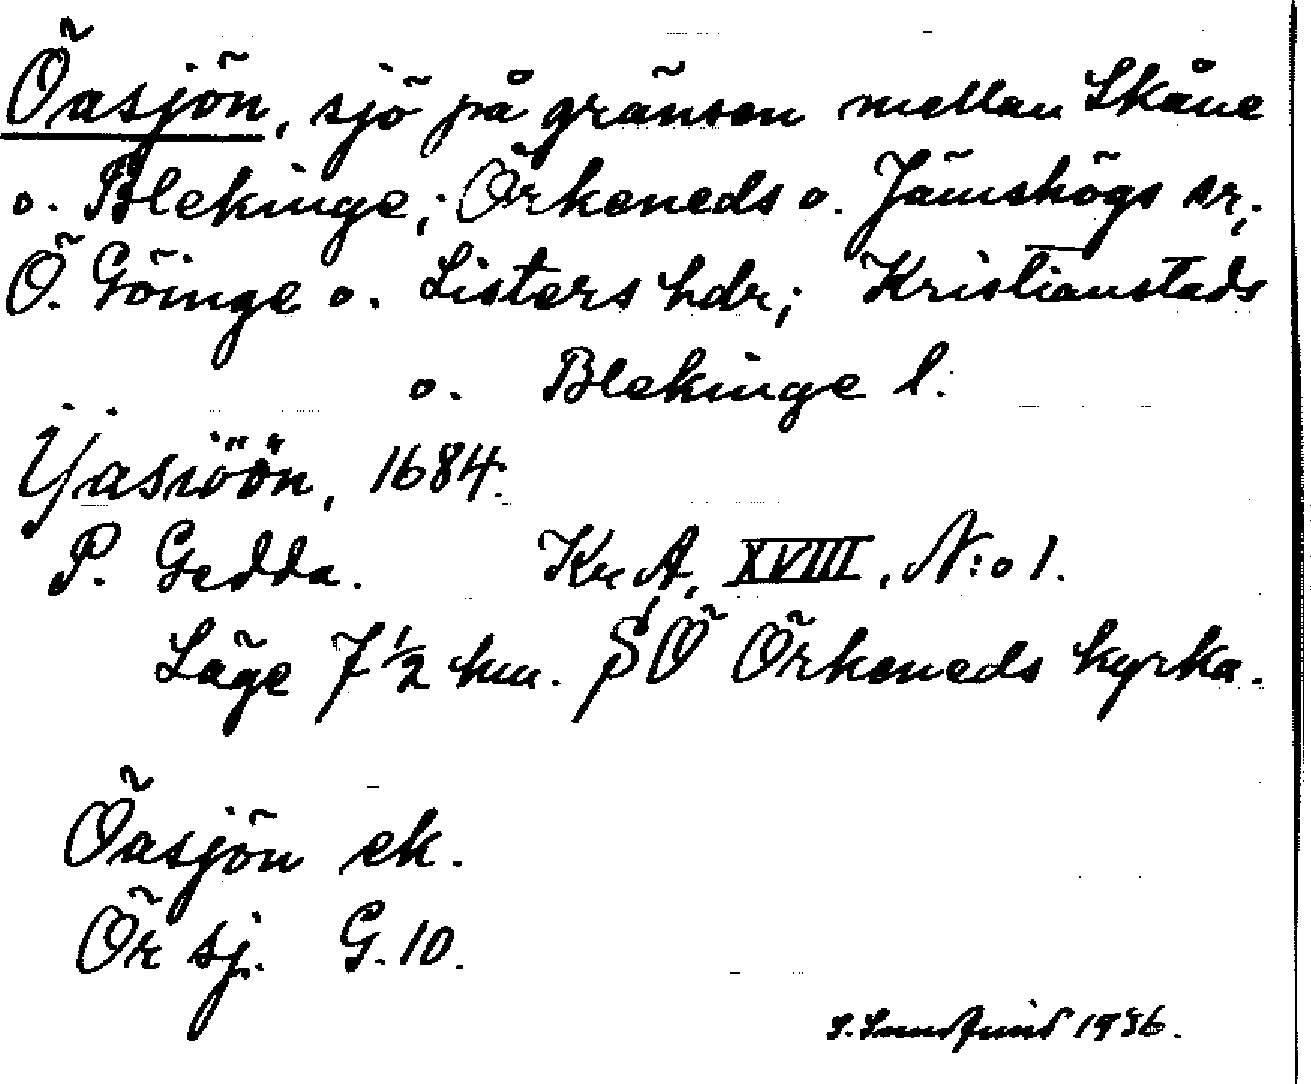 Öasjön, sjö på gränsen mellan Skåne
o. Blekinge; Örkeneds o. Jämshögs sr,;
Ö. Göinge o. Listers hdr; Kristianstads
o. Blekinge l.
Ÿasiöön, 1684.
P. Gedda. Kr. A. XVIII, N:o 1.
Läge 7 1/2 km. SÖ Örkeneds kyrka.
Öasjön ek.
Ör sj. G. 10.
1936.